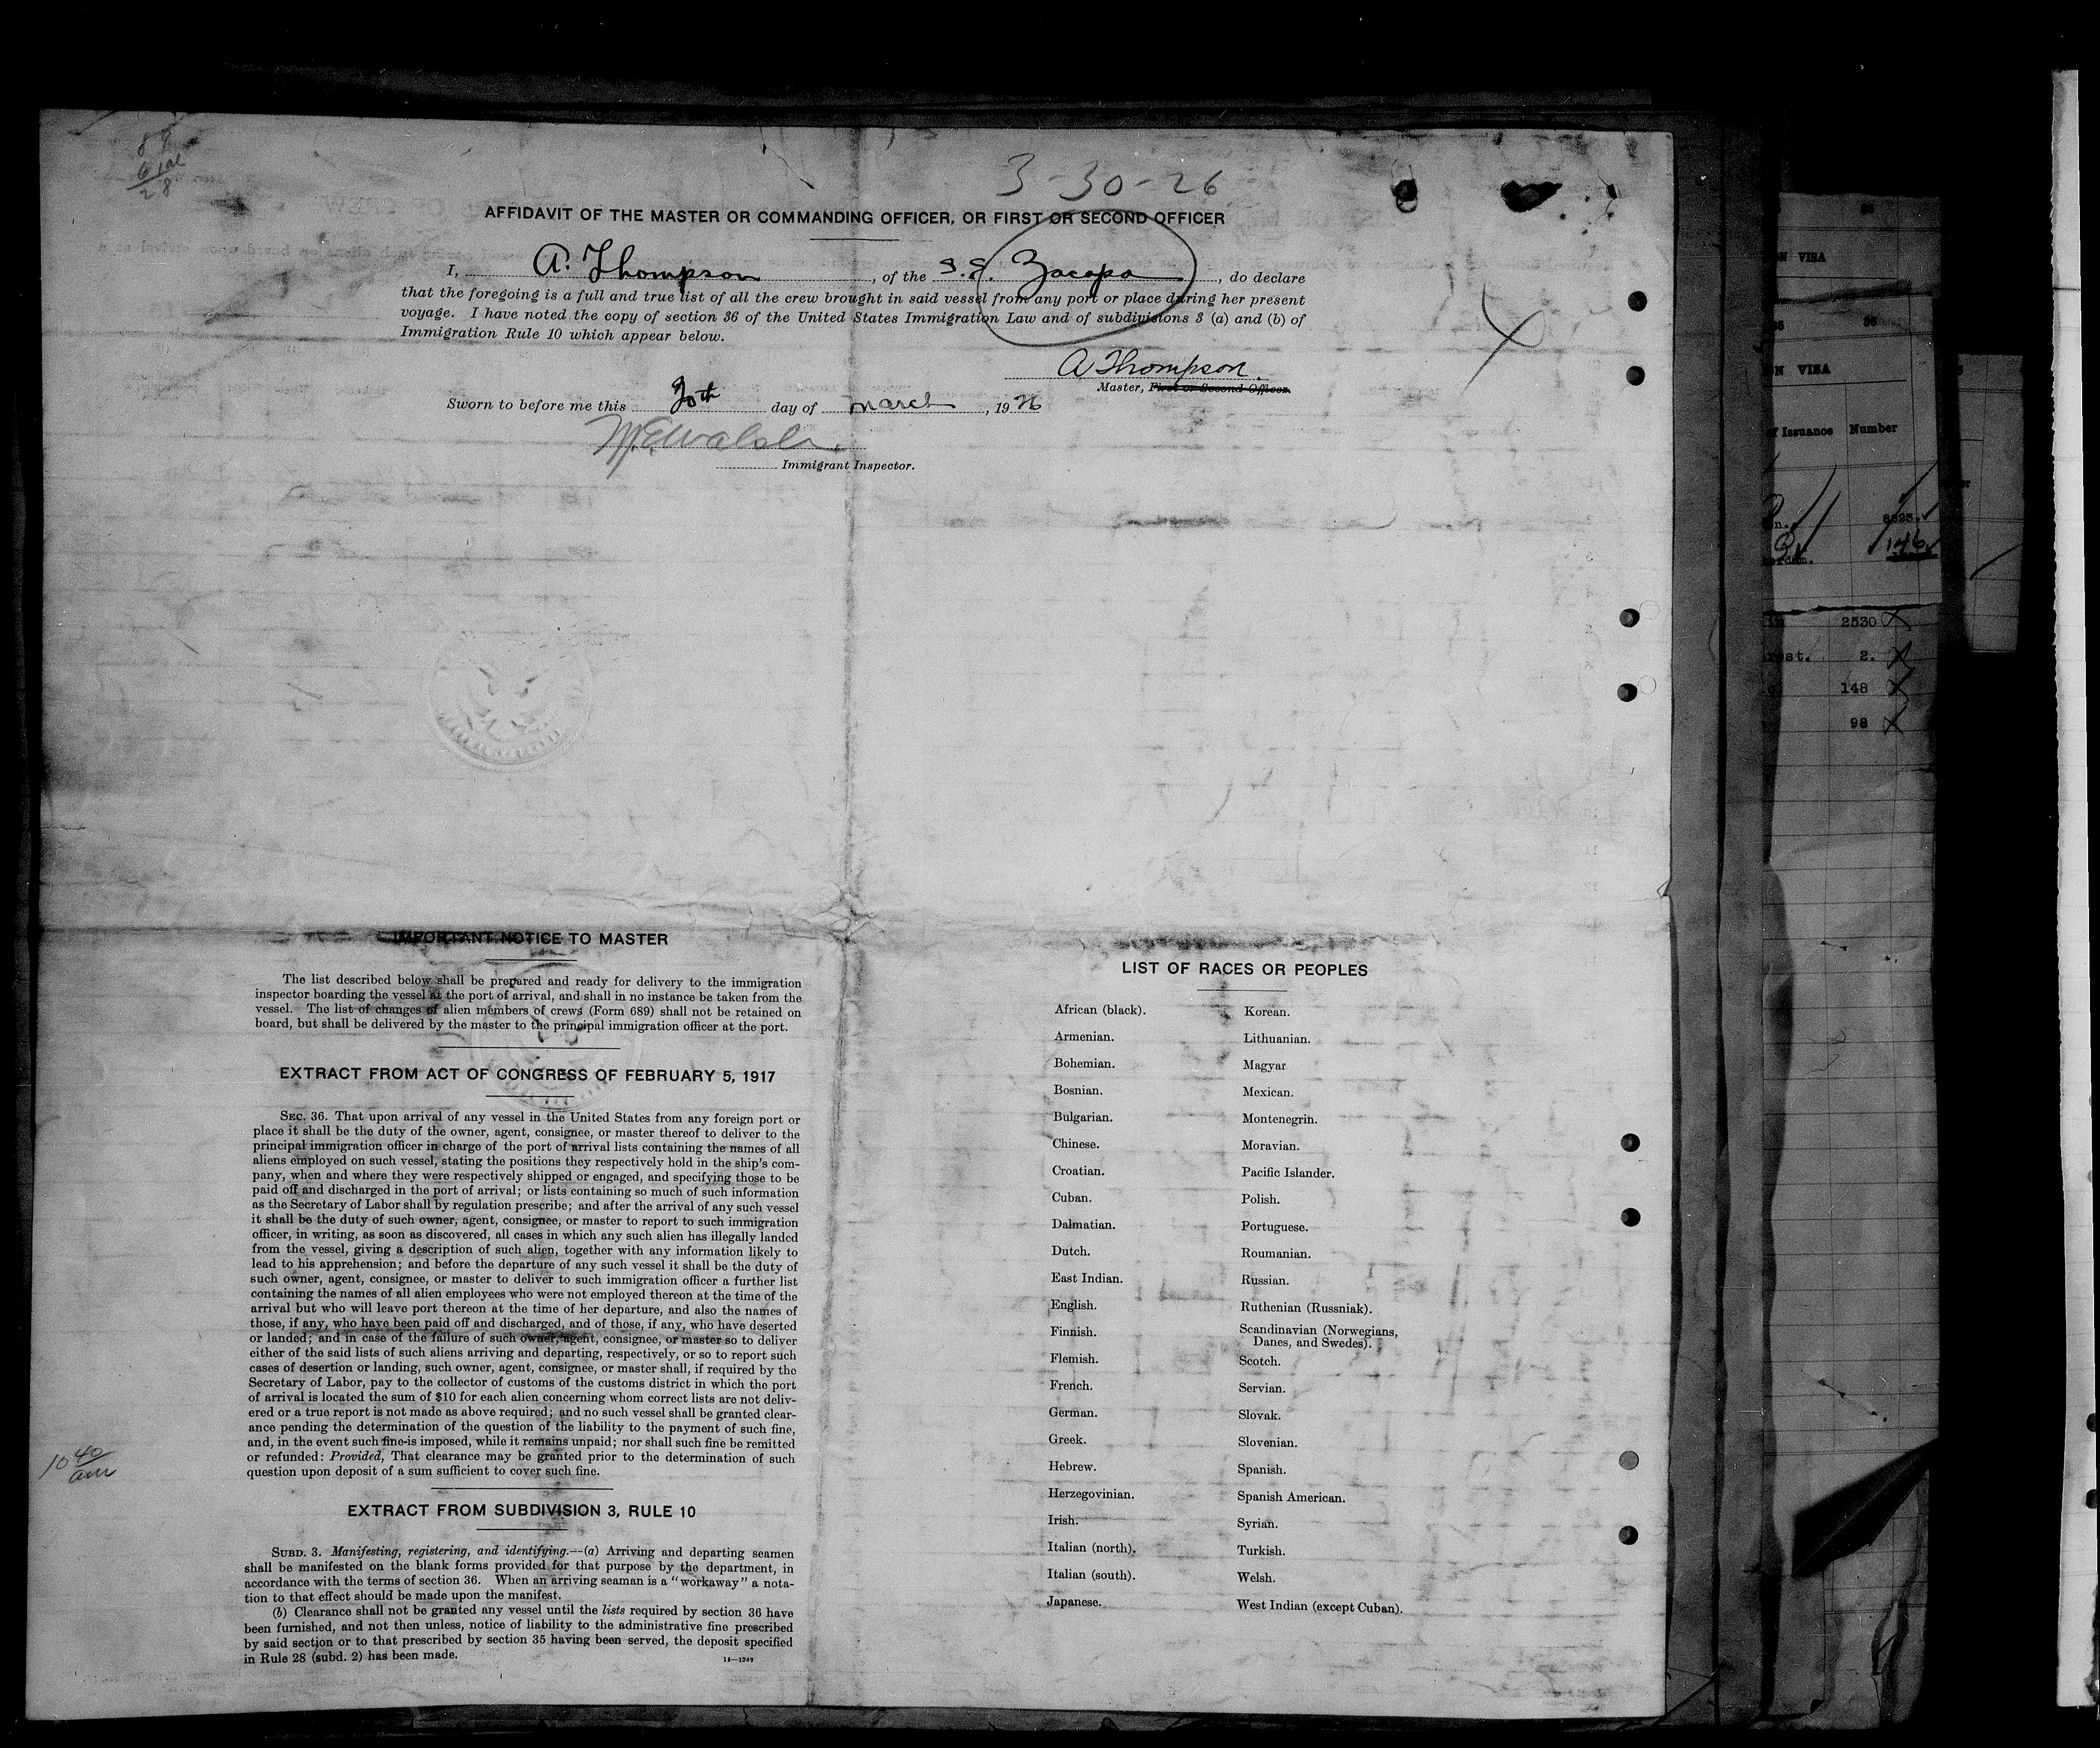 3-30-26
AFFIDAVIT OF THE MASTER OR COMMANDING OFFICER, OR FIRST OR SECOND OFFICER
I, A. Thompson, of the S.S. Zacapa, do declare
that the foregoing is a full and true list of all the crew brought in said vessel from any port or place during her present
voyage. I have noted the copy of section 36 of the United States Immigration Law and of subdivisions 3 (a) and (b) of
Immigration Rule 10 which appear below.
A Thompson.
Master, First or Second Officer.
Sworn to before me this 30th day of March, 1926
Immigrant Inspector.
IMPORTANT NOTICE TO MASTER
The list described below shall be prepared and ready for delivery to the immigration
inspector boarding the vessel at the port of arrival, and shall in no instance be taken from the
vessel. The list of changes of alien members of crews (Form 689) shall not be retained on
board, but shall be delivered by the master to the principal immigration officer at the port.
EXTRACT FROM ACT OF CONGRESS OF FEBRUARY 5, 1917
SEC. 36. That upon arrival of any vessel in the United States from any foreign port or
place it shall be the duty of the owner, agent, consignee, or master thereof to deliver to the
principal immigration officer in charge of the port of arrival lists containing the names of all
aliens employed on such vessel, stating the positions they respectively hold in the ship's com-
pany, when and where they were respectively shipped or engaged, and specifying those to be
paid off and discharged in the port of arrival; or lists containing so much of such information
as the Secretary of Labor shall by regulation prescribe; and after the arrival of any such vessel
it shall be the duty of such owner, agent, consignee, or master to report to such immigration
officer, in writing, as soon as discovered, all cases in which any such alien has illegally landed
from the vessel, giving a description of such alien, together with any information likely to
lead to his apprehension; and before the departure of any such vessel it shall be the duty of
such owner, agent, consignee, or master to deliver to such immigration officer a further list
containing the names of all alien employees who were not employed thereon at the time of the
arrival but who will leave port thereon at the time of her departure, and also the names of
those, if any, who have been paid off and discharged, and of those, if any, who have deserted
or landed; and in case of the failure of such owner, agent, consignee, or master so to deliver
either of the said lists of such aliens arriving and departing, respectively, or so to report such
cases of desertion or landing, such owner, agent, consignee, or master shall, if required by the
Secretary of Labor, pay to the collector of customs of the customs district in which the port
of arrival is located the sum of $10 for each alien concerning whom correct lists are not deliv-
ered or a true report is not made as above required; and no such vessel shall be granted clear-
ance pending the determination of the question of the liability to the payment of such fine,
and, in the event such fine is imposed, while it remains unpaid; nor shall such fine be remitted
or refunded: Provided, That clearance may be granted prior to the determination of such
question upon deposit of a sum sufficient to cover such fine.
10 40/am
EXTRACT FROM SUBDIVISION 3, RULE 10
SUBD. 3. Manifesting, registering, and identifying.—(a) Arriving and departing seamen
shall be manifested on the blank forms provided for that purpose by the department, in
accordance with the terms of section 36. When an arriving seaman is a "workaway" a nota-
tion to that effect should be made upon the manifest.
(b) Clearance shall not be granted any vessel until the lists required by section 36 have
been furnished, and not then unless, notice of liability to the administrative fine prescribed
by said section or to that prescribed by section 35 having been served, the deposit specified
in Rule 28 (subd. 2) has been made.
14—1249
LIST OF RACES OR PEOPLES
African (black).
Armenian.
Bohemian.
Bosnian.
Bulgarian.
Chinese.
Croatian.
Cuban.
Dalmatian.
Dutch.
East Indian.
English.
Finnish.
Flemish.
French.
German.
Greek.
Hebrew.
Herzegovinian.
Irish.
Italian (north).
Italian (south).
Japanese.
Korean.
Lithuanian.
Magyar
Mexican.
Montenegrin.
Moravian.
Pacific Islander.
Polish.
Portuguese.
Roumanian.
Russian.
Ruthenian (Russniak).
Scandinavian (Norwegians,
Danes, and Swedes).
Scotch.
Servian.
Slovak.
Slovenian.
Spanish.
Spanish American.
Syrian.
Turkish.
Welsh.
West Indian (except Cuban).
VISA
36
VISA
Issuance Number
146
2530
2.
148
98